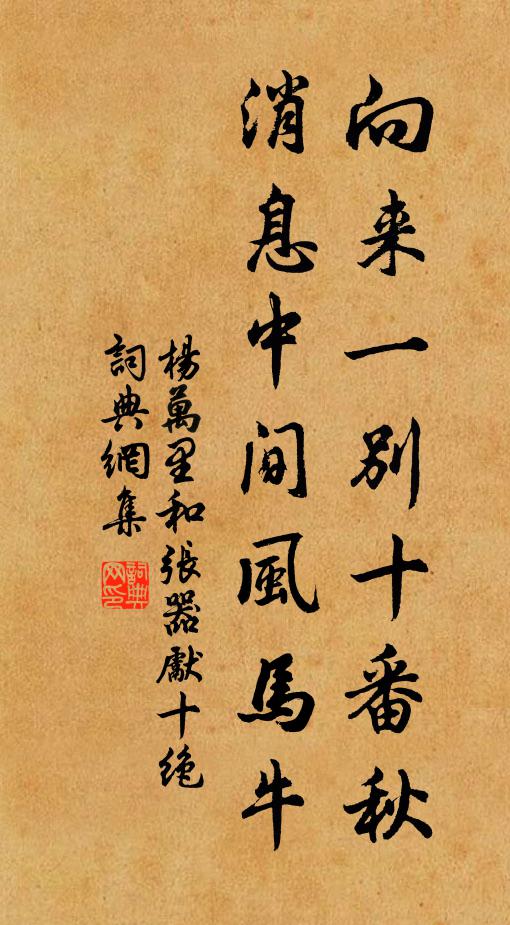 向来一别十番秋
消息中间風馬牛
楊萬里和張器獻十絶
詞典網集
詞典網印